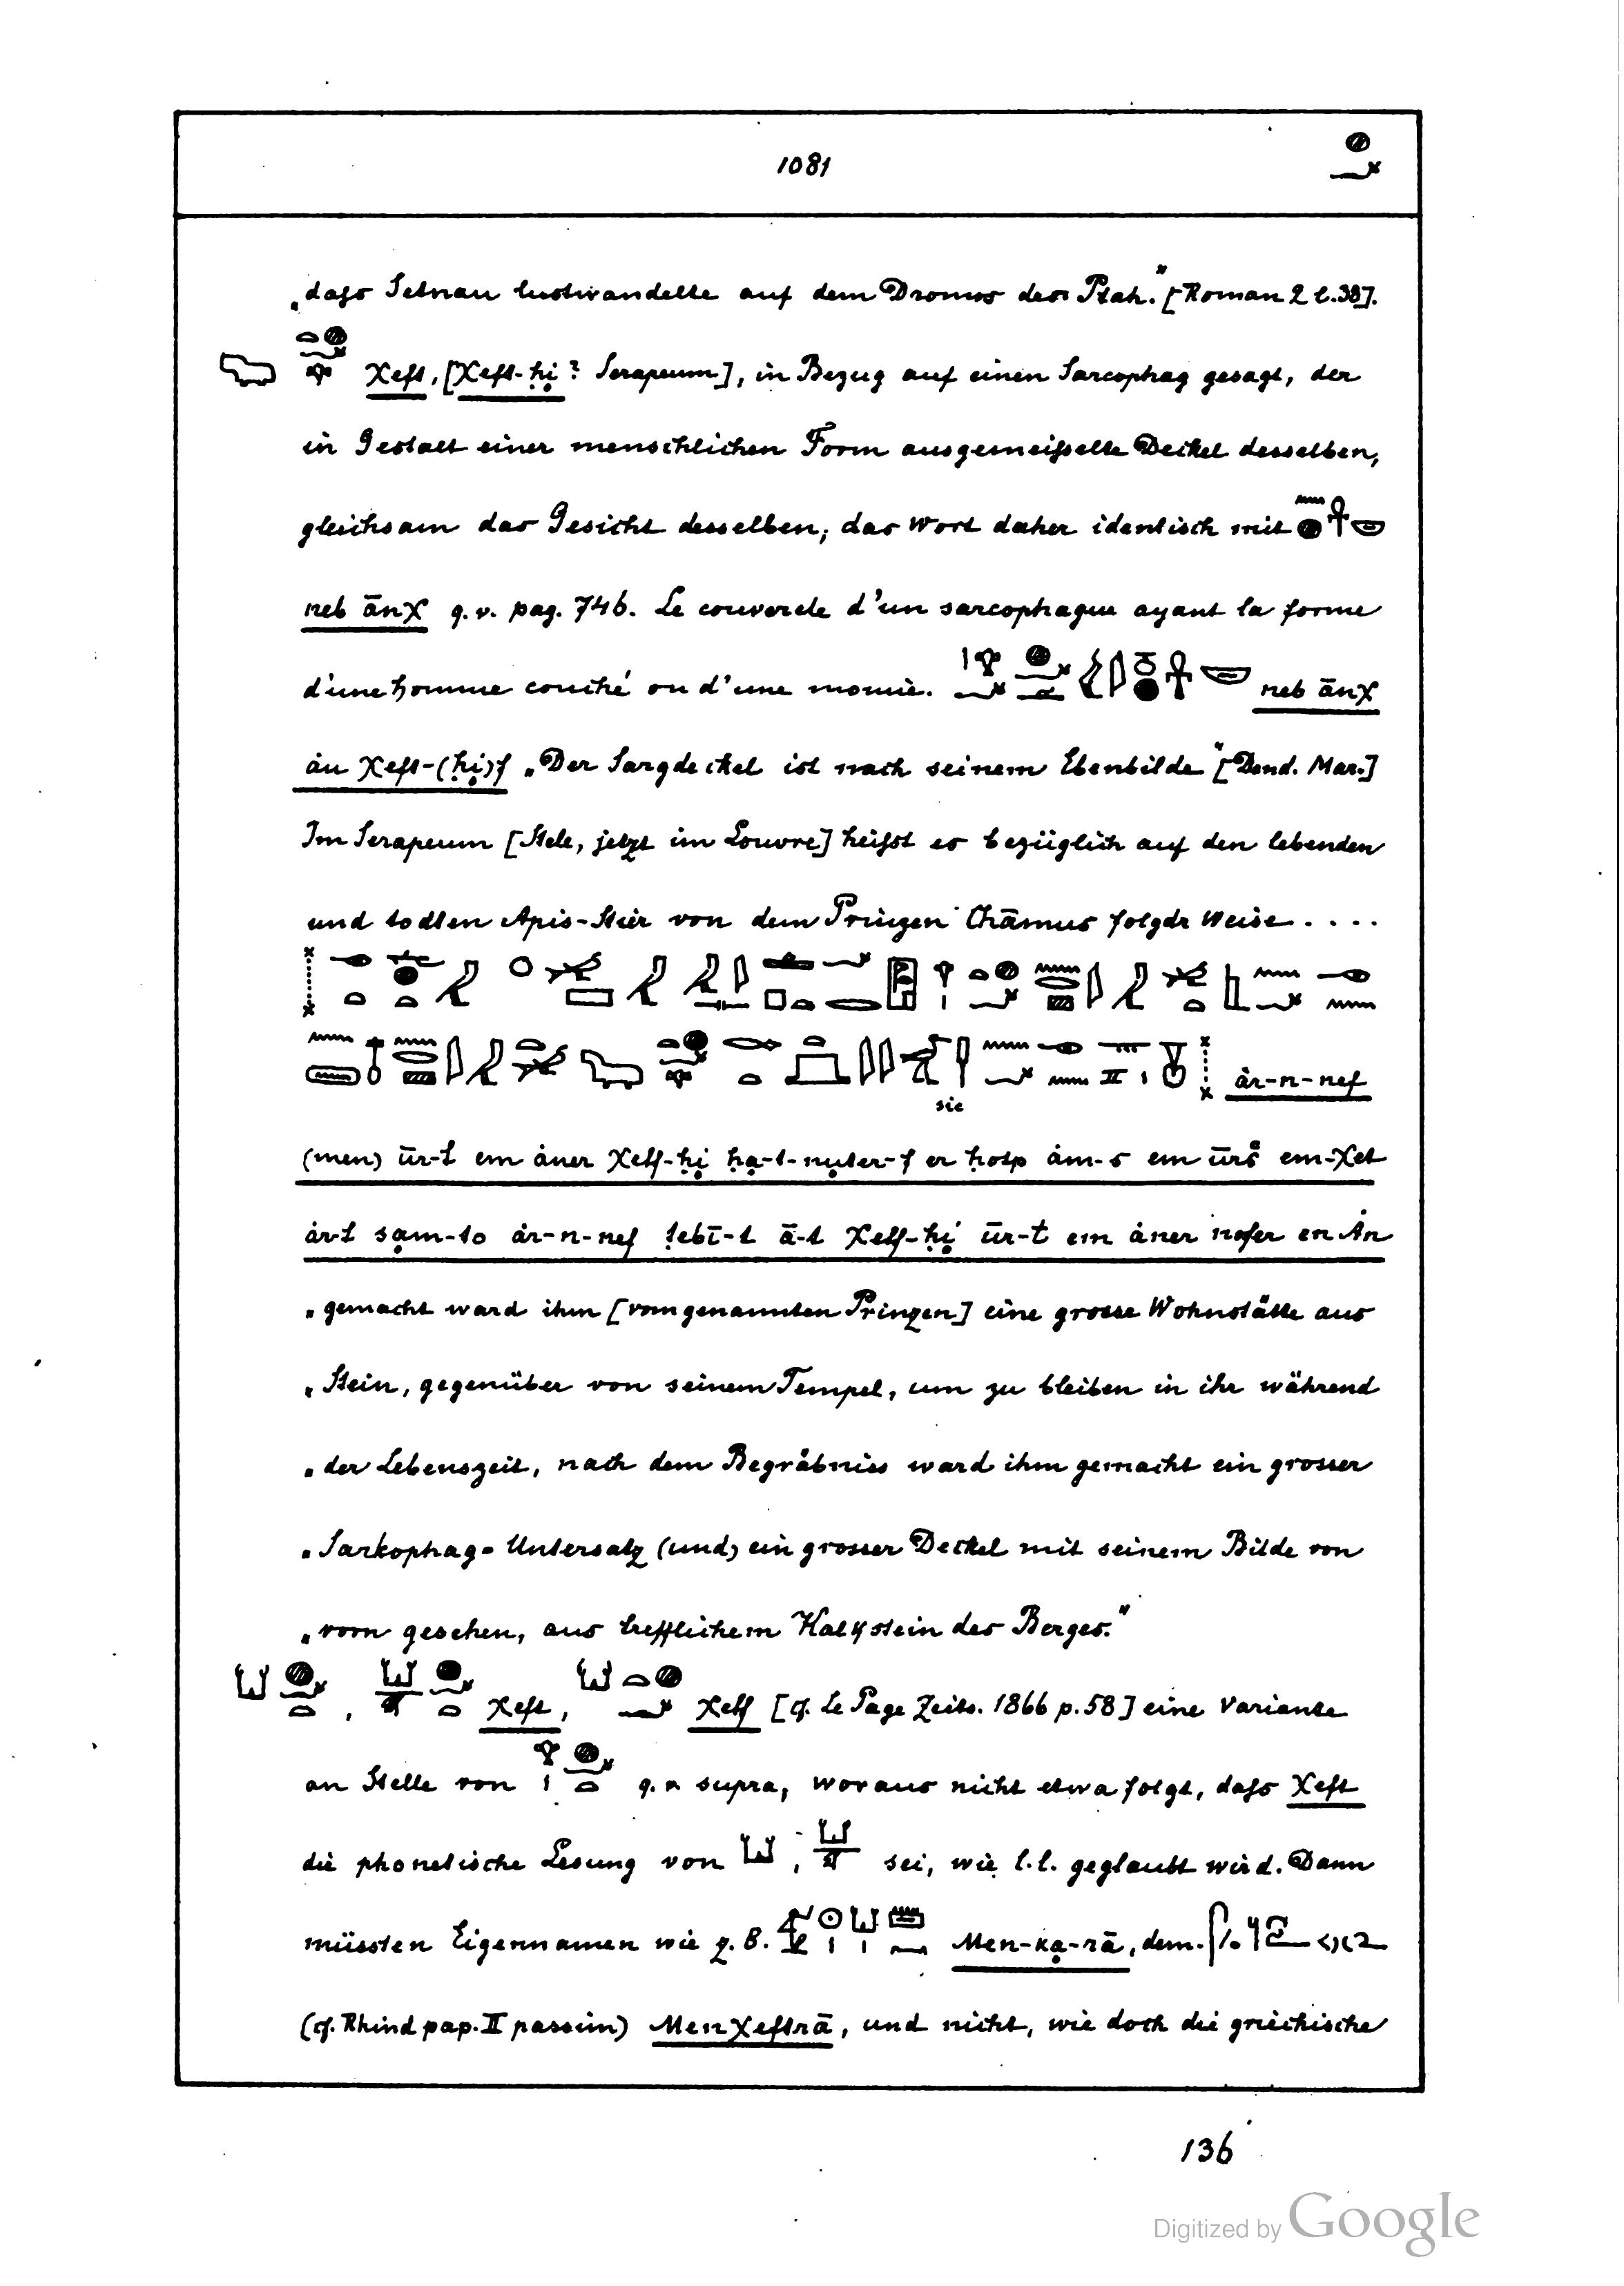 1081
„dass Setnau lustwandelte auf dem Dromos des Ptah." [Roman 2 l. 38].
χeft, [χeft-ḥi? Serapeum], in Bezug auf einen Sarcophag gesagt, der
in Gestalt einer menschlichen Form ausgemeisselte Deckel desselben,
gleichsam das Gesicht desselben; das Wort daher identisch mit
neb ānχ q. v. pag. 746. Le couvercle d'un sarcophague ayant la forme
d'une homme couché ou d'une momie. neb ānχ
àu χeft-(ḥi)f „Der Sargdeckel ist nach seinem Ebenbilde" [Dend. Mar.]
Im Serapeum [Stele, jetzt im Louvre] heisst es bezüglich auf den lebenden
und todten Apis-Stier von dem Prinzen Chāmus folgdr Weise . . . .
àr-n-nef
sic
(men) ūr-t em àner χetf-ḥi ḥa-t-nuter-f er ḥotp àm-s em ūrš em-χet
àr-t sam-to àr-n-nef tebī-t ā-t χetf-ḥi ūr-t em àner nofer en Àn
„gemacht ward ihm [vom genannten Prinzen] eine grosse Wohnstätte aus
„Stein, gegenüber von seinem Tempel, um zu bleiben in ihr während
„der Lebenszeit, nach dem Begräbniss ward ihm gemacht ein grosser
„Sarkophag-Untersatz (und) ein grosser Deckel mit seinem Bilde von
„vorn gesehen, aus trefflichem Kalkstein des Berges."
, χeft, χetf [cf. Le Page Zeits. 1866 p. 58] eine Variante
an Stelle von q. v. supra, woraus nicht etwa folgt, dass χeft
die phonetische Lesung von , sei, wie l. l. geglaubt wird. Dann
müssten Eigennamen wie z. B. Men-ka-rā, dem.
(cf. Rhind pap. II passim) Menχeftrā, und nicht, wie doch die griechische
136
Digitized by Google